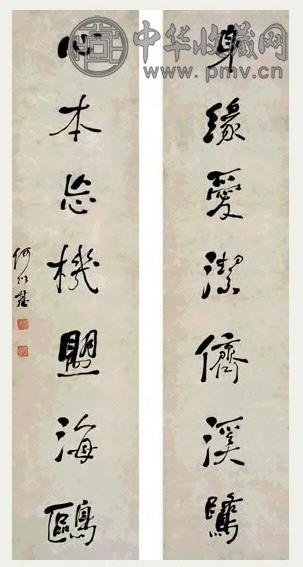 中华收藏网
www.pmv.cn
身緣愛潔儕溪鷺
心本忘機盟海鷗
何紹基